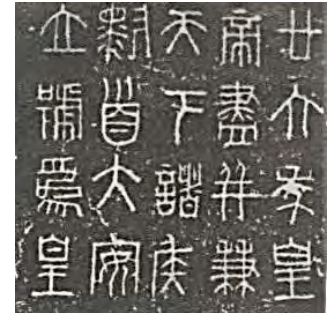 廿六年皇
帝盡并兼
天下諸侯
黔首大安
立號爲皇